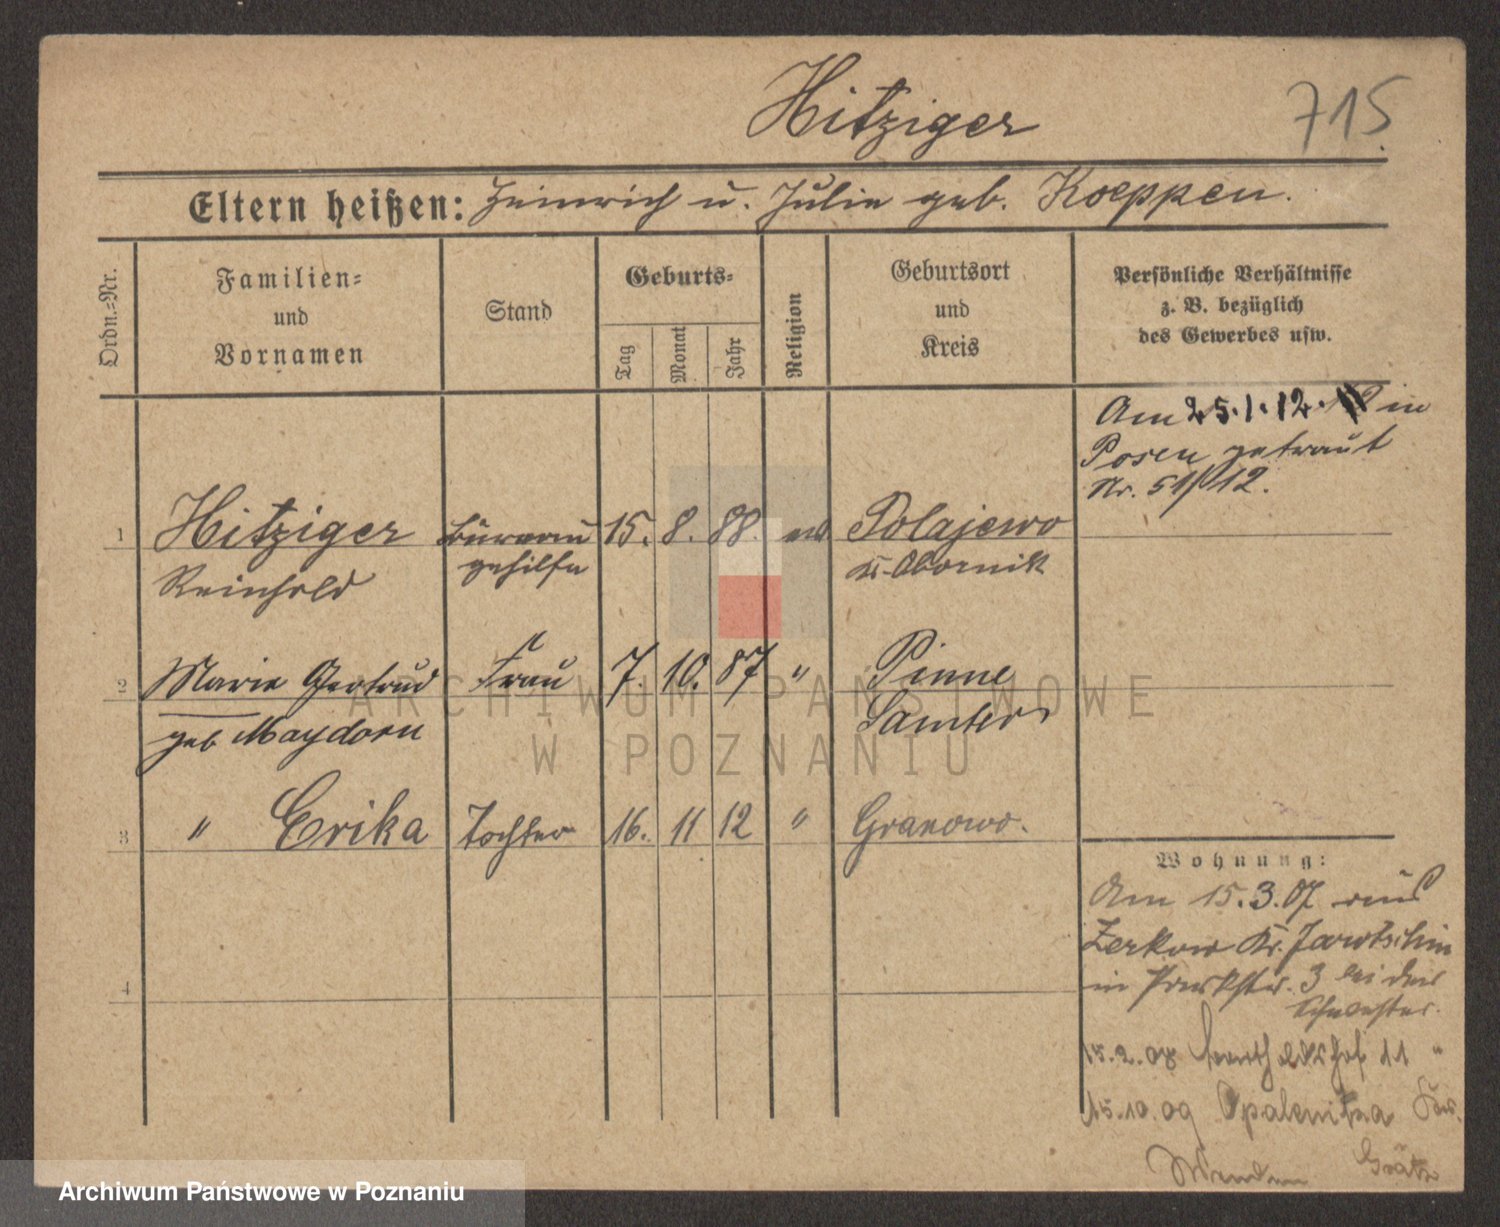 Hitziger
715
Eltern heißen: Heinrich u. Julie geb. Koeppen.
Ordn.-Nr.
Familien-
und
Vornamen
Stand
Geburts-
Tag
Monat
Jahr
Religion
Geburtsort
und
Kreis
Persönliche Verhältnisse
z. B. bezüglich
des Gewerbes usw.
Am 25.1.12 in
Posen getraut
Nr. 51/12.
1 Hitziger Büreau 15. 8. 88. ev Polajewo
Reinhold gehilfe Kr. Obornik
2 Marie Gertrud Frau 7. 10. 87 " Pinne
geb Maydorn Samter
3 " Erika Tochter 16. 11 12 " Granowo.
4
Wohnung:
Am 15.3.07 aus
Zerkow Kr. Jarotschin
in 3 bei der
Schwester.
15.2.08 11 "
15.10.09 Opalenitza
Grätz
ARCHIWUM PAŃSTWOWE
W POZNANIU
Archiwum Państwowe w Poznaniu